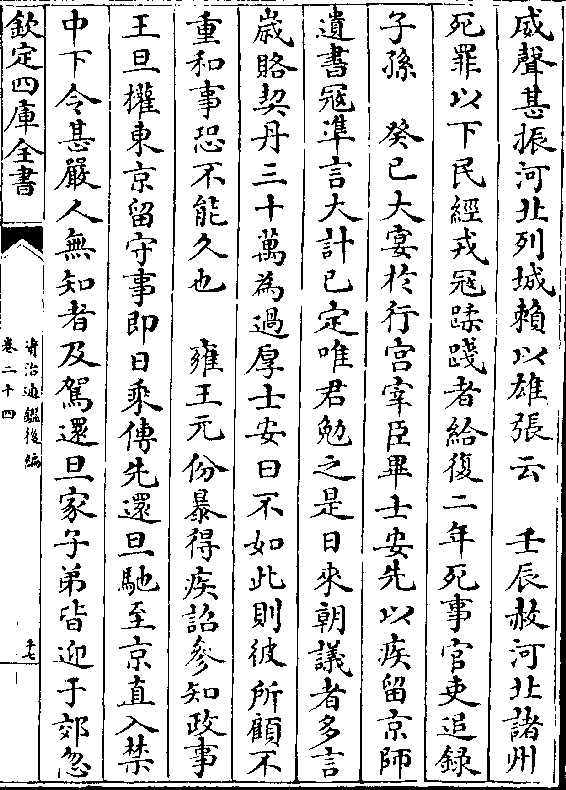 威聲甚振河北列城賴以雄張云　壬辰赦河北諸州
死罪以下民經戎冦蹂踐者給復二年死事官吏追録
子孫　癸巳大宴於行宫宰臣畢士安先以疾留京師
遺書冦準言大計已定唯君勉之是日來朝議者多言
嵗賂契丹三十萬為過厚士安曰不如此則彼所顧不
重和事恐不能久也　雍王元份暴得疾詔參知政事
王旦權東京留守事即日乘傳先還旦馳至京直入禁
中下令甚嚴人無知者及駕還旦家子弟皆迎于郊忽
欽定四庫全書
資治通鑑後編
卷二十四